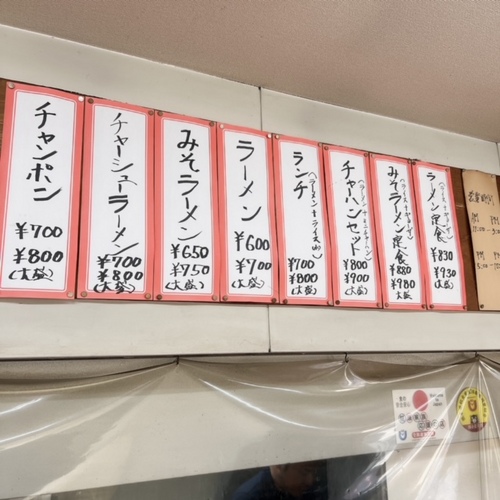 ラーメン定食
(ライス+ギョーザ)
¥830
¥930
(大盛)
みそラーメン定食
(ライス+ギョーザ)
¥880
¥980
大盛
チャーハンセット
¥800
¥900
(大盛)
ランチ
(ラーメン+ライス(小))
¥700
¥800
(大盛)
ラーメン
¥600
¥700
(大盛)
みそラーメン
¥650
¥750
(大盛)
チャーシューラーメン
¥700
¥800
(大盛)
チャンポン
¥700
¥800
(大盛)